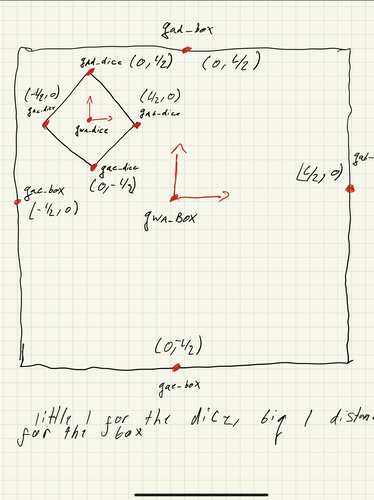 gad-box
gad-dice (0, L/2) (0, L/2)
(-L/2, 0) (L/2, 0)
gac-dice gab-dice
gwa-dice
gae-dice
(0, -L/2)
gab-
gac-box [L/2, 0)
[-L/2, 0)
gWA-BOX
(0, -L/2)
gae-box
little l for the dice, big l distan
for the box